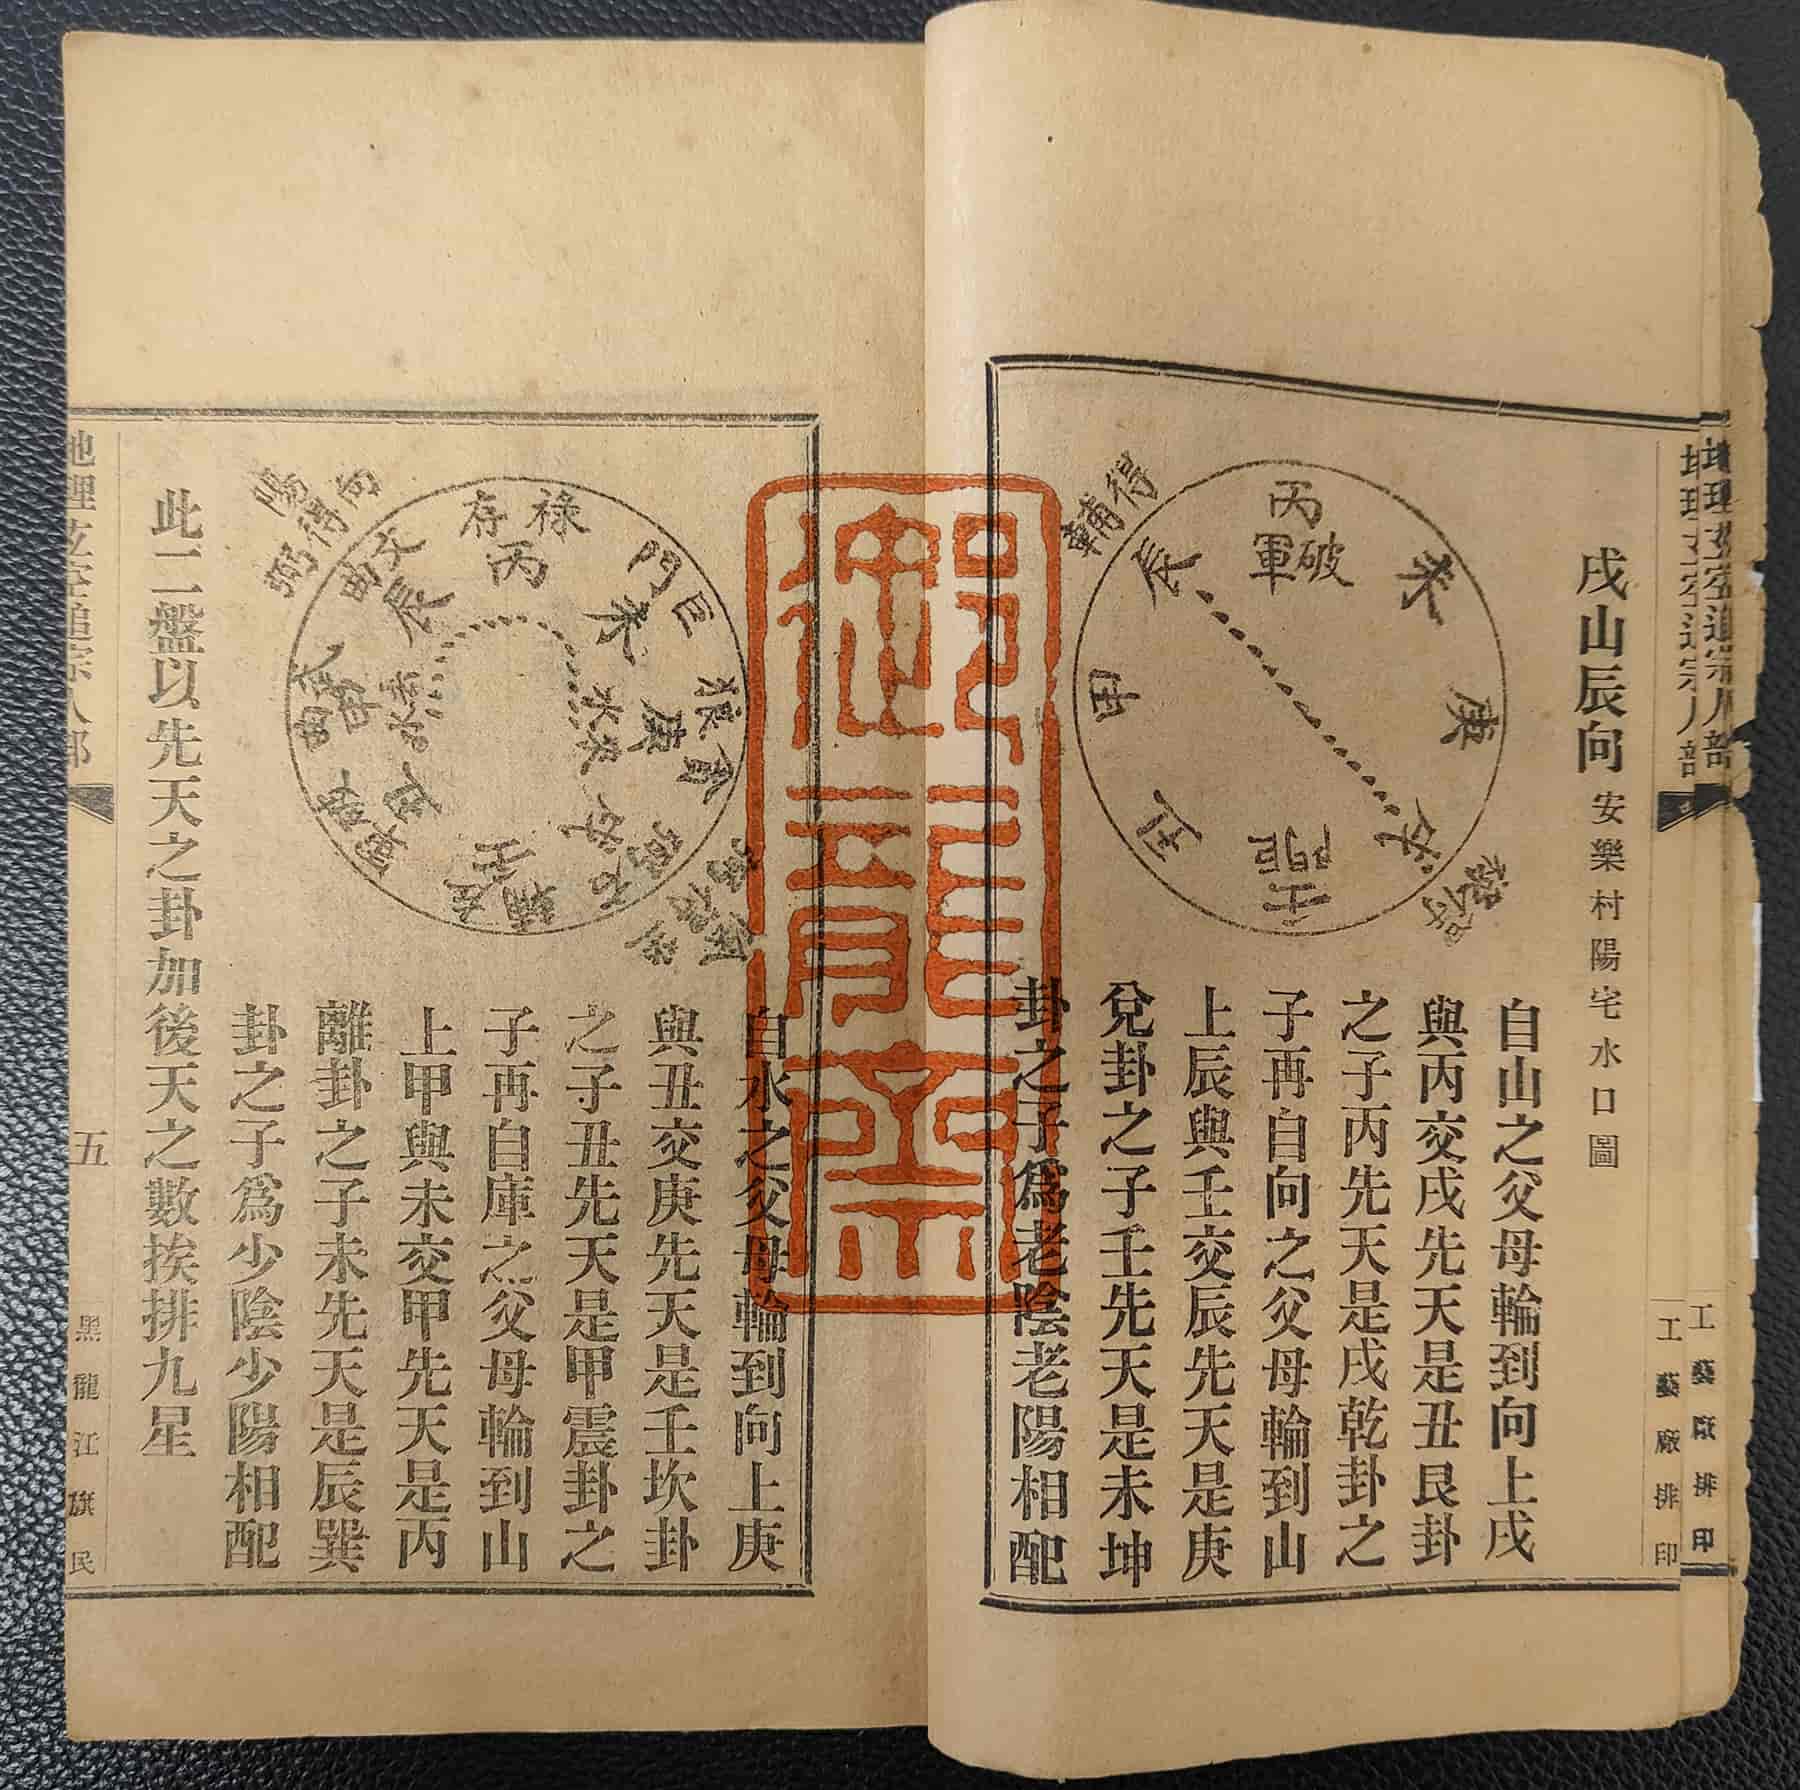 戌山辰向 安樂村陽宅水口圖
得輔
丙
破軍
未
辰
庚
甲
戌
丑
壬
自山之父母輪到向上戌
與丙交戌先天是丑艮卦
之子丙先天是戌乾卦之
子再自向之父母輪到山
上辰與壬交辰先天是庚
兌卦之子壬先天是未坤
卦之子爲老陰老陽相配
工藝廠排印
工藝廠排印
向得弼
祿存
丙
巨門
未
文曲
辰
庚
水來
甲
丑
戌
壬
自水之父母輪到向上庚
與丑交庚先天是壬坎卦
之子丑先天是甲震卦之
子再自庫之父母輪到山
上甲與未交甲先天是丙
離卦之子未先天是辰巽
卦之子爲少陰少陽相配
此二盤以先天之卦加後天之數挨排九星
地理玄空追宗人部
五
黑龍江旗民